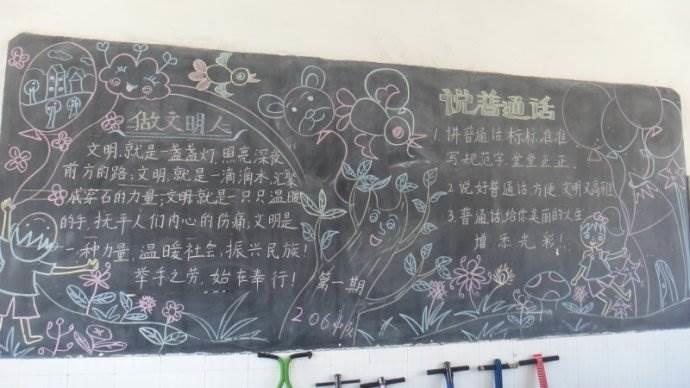 做文明人
文明,就是一盏盏灯,照亮深夜
前方的路;文明,就是一滴滴水,汇聚
成穿石的力量;文明,就是一只只温暖
的手,抚平人们内心的伤痛;文明是
一种力量,温暖社会,振兴民族!
举手之劳,始在奉行!
第一期
说普通话
1. 讲普通话,标标准准
写规范字,堂堂正正
2. 说好普通话,方便
3. 普通话,给你美丽的人生
增添光彩!